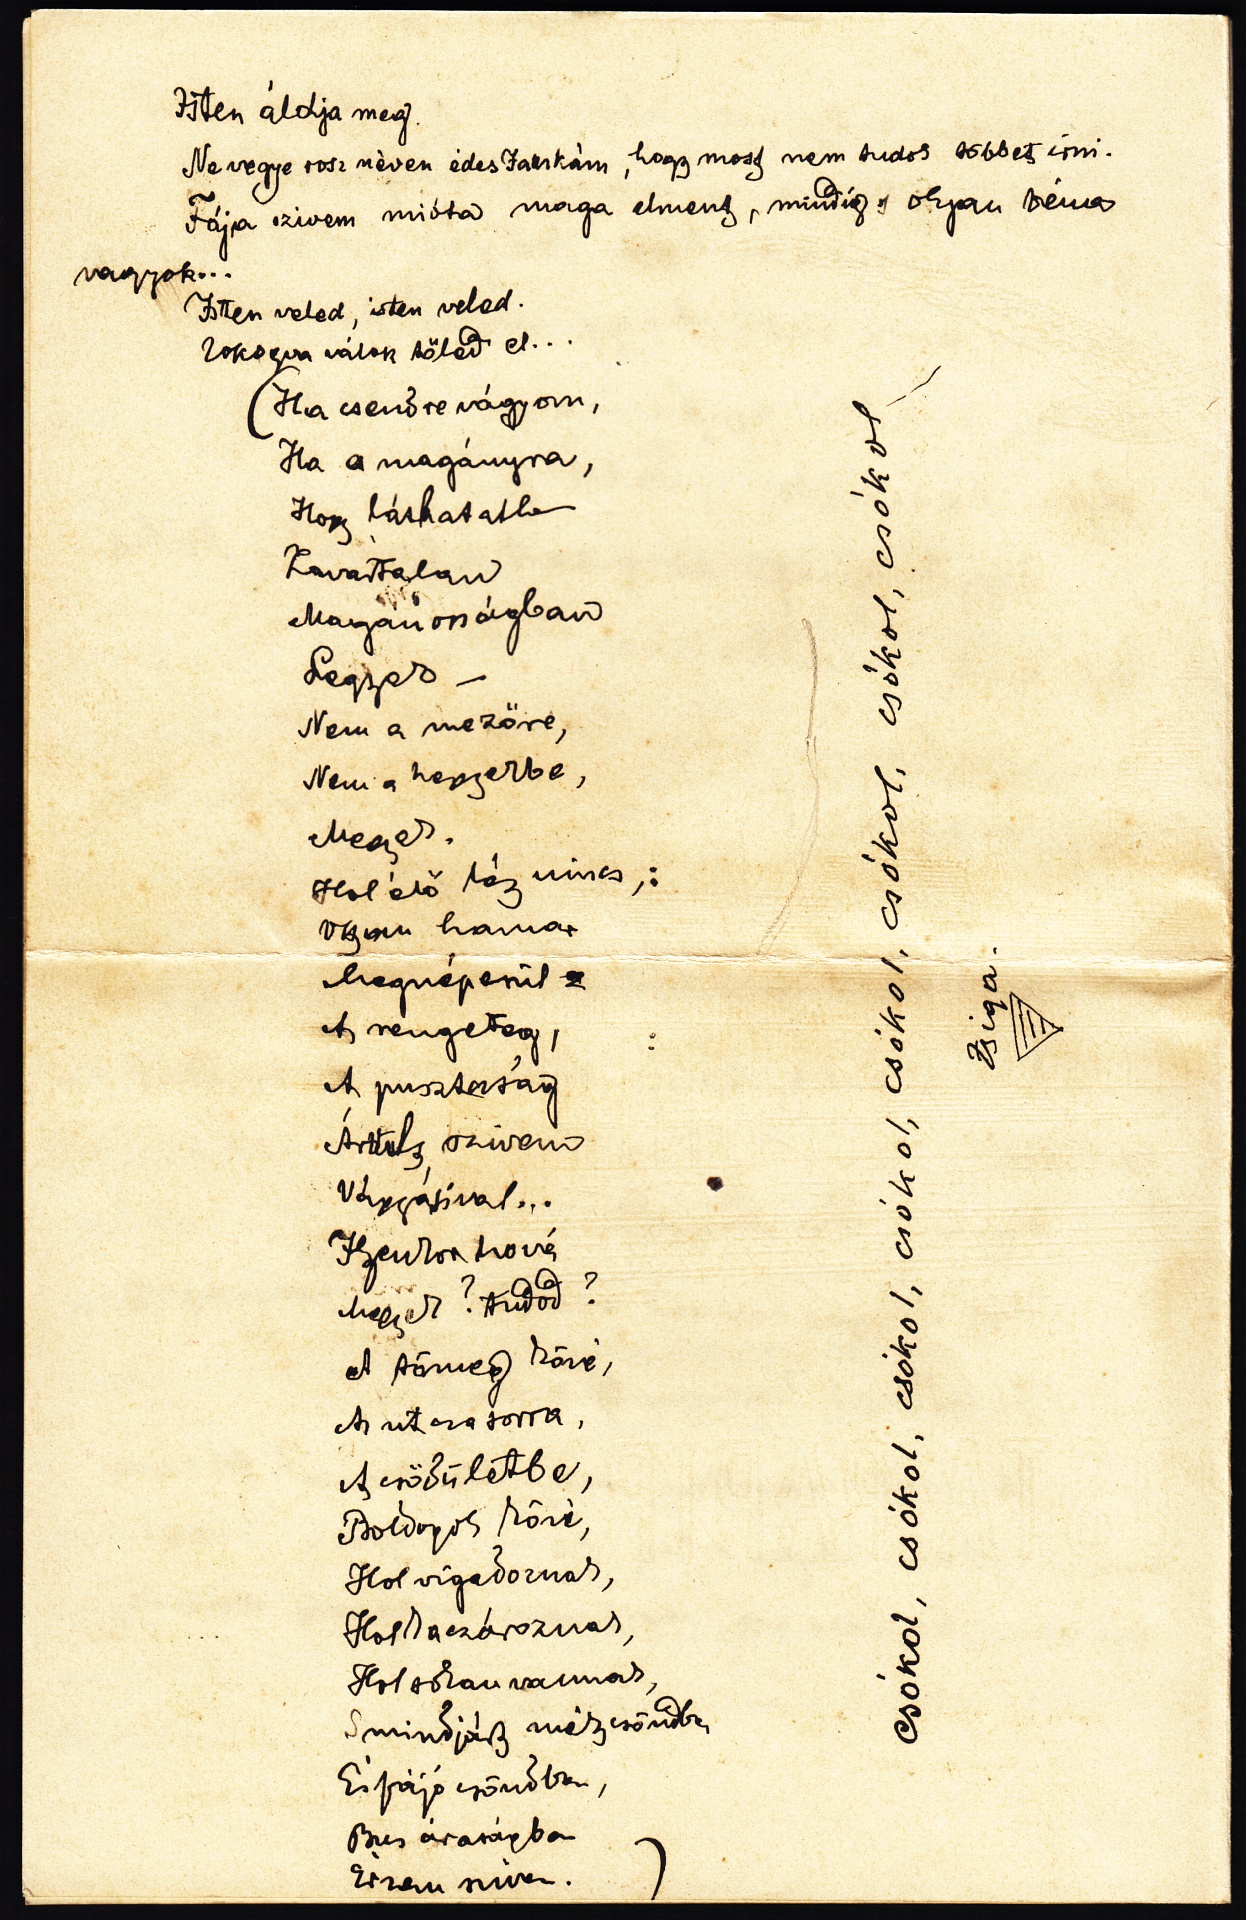 Isten áldja meg.
Ne vegye rosz néven édes Iczuskám, hogy most nem tudok többet irni.
Fáj a szivem mióta maga elment, mindíg olyan béna
vagyok...
Isten veled, isten veled.
Zokogva válok tőled el...
(Ha csendre vágyom,
Ha a magányra,
Hogy láthatatlan
Zavartalan
Magánosságban
Legyek —
Nem a mezőre,
Nem a hegyekbe,
Megyek.
Hol élő lény nincs,
Olyan hamar
Megnépesül
A rengeteg,
A pusztaság
Ártult szivem
Vágyásival...
Ilyenkor hová
Megyek? tudod?
A tömeg közé,
Az utcza sorra,
A csődületbe,
Boldogok közé,
Hol vigadoznak,
Hol kaczároznak,
Hol sokan vannak,
S mindjárt mély csöndbe,
És fájó csöndben,
Bús árvaságba
Érzem szivem.)
csókol, csókol, csókol, csókol, csókol, csókol, csókol, csókol, csókol, csókol, csókol, csókol
Zsiga.